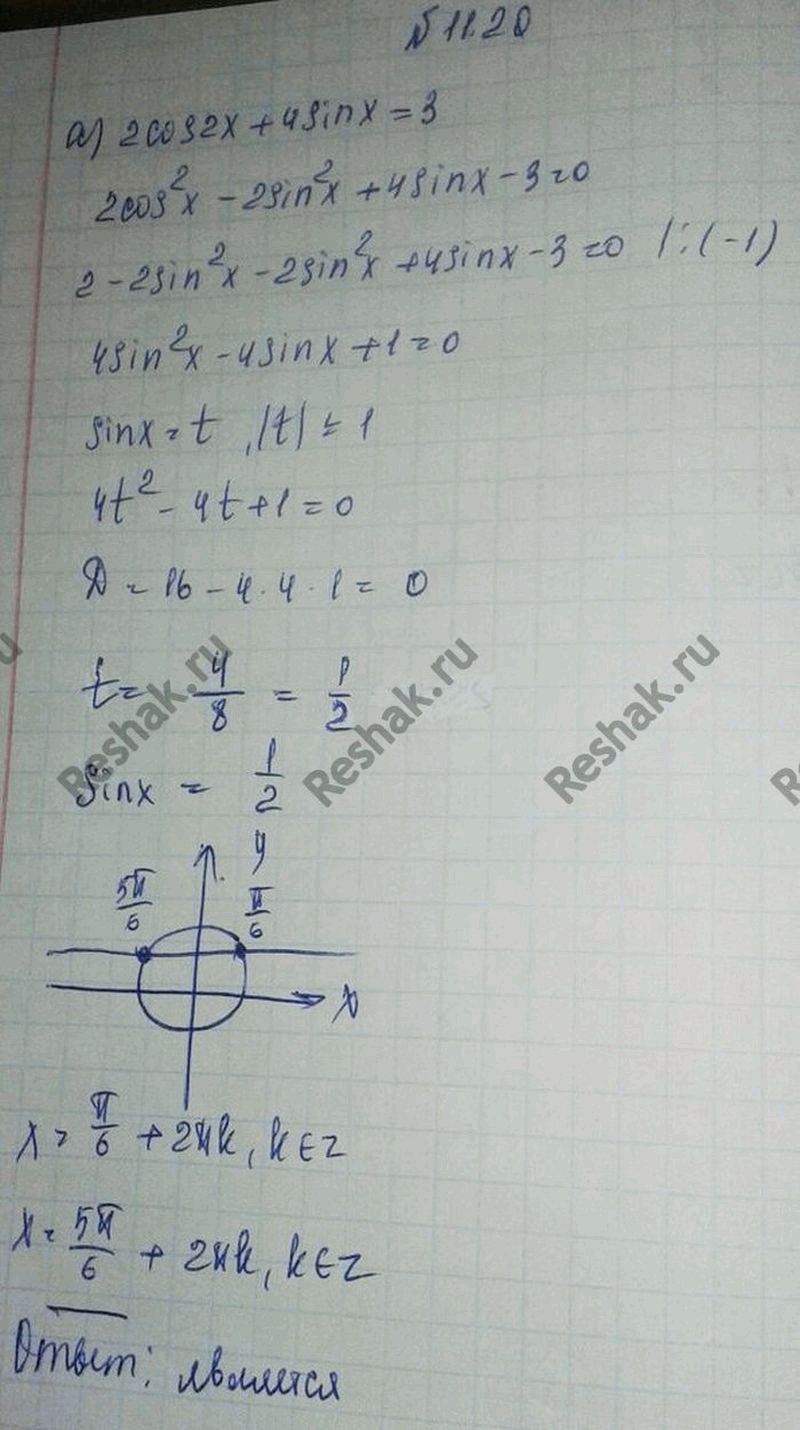 №11.20
а) 2cos2x + 4sinx = 3
2cos²x - 2sin²x + 4sinx - 3 = 0
2 - 2sin²x - 2sin²x + 4sinx - 3 = 0 |:(-1)
4sin²x - 4sinx + 1 = 0
sinx = t, |t| ≤ 1
4t² - 4t + 1 = 0
D = 16 - 4·4·1 = 0
t = 4/8 = 1/2
sinx = 1/2
Reshak.ru Reshak.ru Reshak.ru
y
5π/6 π/6
x
x = π/6 + 2πk, k∈z
x = 5π/6 + 2πk, k∈z
Ответ: является